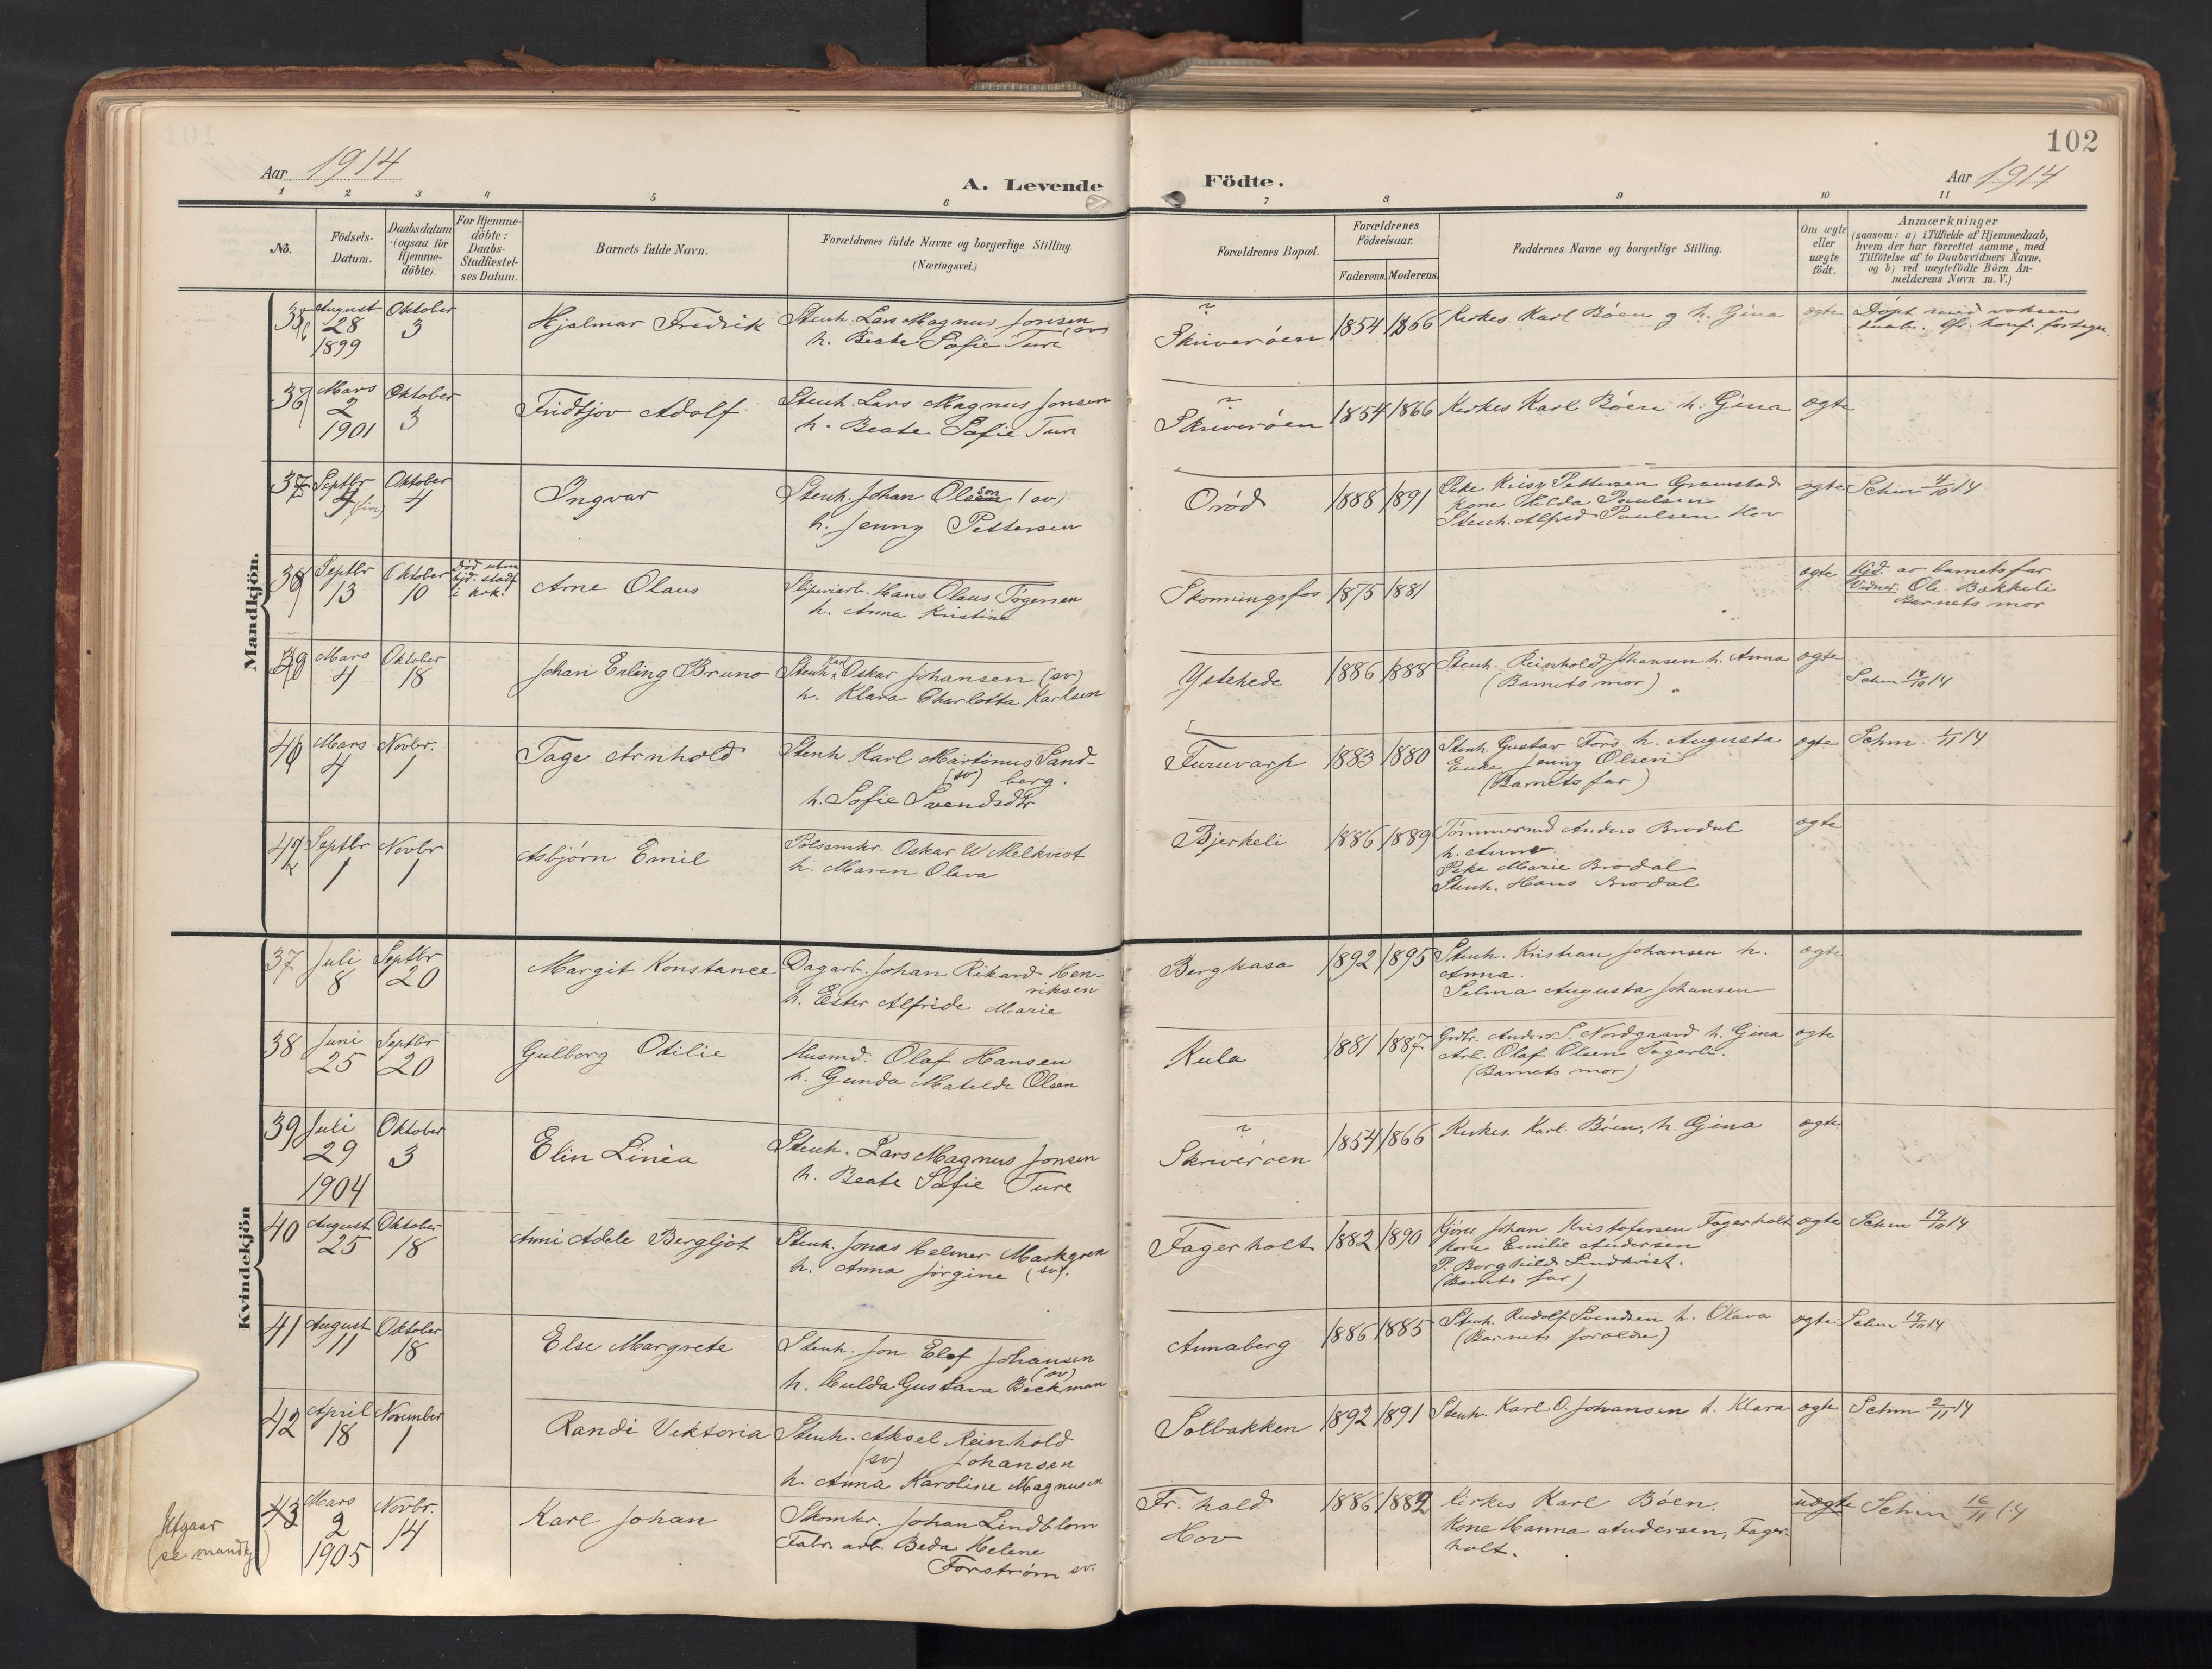 102
Aar 1914
A. Levende Födte.
Aar 1914
1 2 3 4 5 6 7 8 9 10 11
No.
Födsels-Datum.
Daabsdatum (ogsaa for Hjemme-döbte).
For Hjemme-döbte: Daabs-Stadfæstel-ses Datum.
Barnets fulde Navn.
Forældrenes fulde Navne og borgerlige Stilling. (Næringsvei.)
Forældrenes Bopæl.
Forældrenes Födselsaar.
Faderens. Moderens.
Faddernes Navne og borgerlige Stilling.
Om ægte eller uægte födt.
Anmærkninger
(saasom: a) i Tilfælde af Hjemmedaab, hvem der har forrettet samme, med Tilföielse af to Daabsvidners Navne, og b) ved uægtefödte Börn An-melderens Navn m. V.)
Mandkjön.
August 28 1899 Oktober 3 Hjalmar Fredrik Stenh. Lars Magnus Jonsen (sv) h. Beate Sofie Ture Skriverøen 1854 1866 Kirkes Karl Bøen og h. Gina ægte Døpt med voksens daab. Cfr. konf. fortegn.
36 Mars 2 1901 Oktober 3 Fridtjov Adolf Stenh. Lars Magnus Jonsen h. Beate Sofie Ture Skriverøen 1854 1866 Kirkes Karl Bøen h. Gina ægte
37 Septbr 4 (fire) Oktober 4 Ingvar Stenh. Johan Olsson (sv) h. Jenny Pettersen Orød 1888 1891 Pike Pettersen Graunstad Kone Hilda Paulsen Stenh. Alfred Paulsen Hov ægte Schm 4/10 14
38 Septbr 13 Oktober 10 Død uten hjd. stadf. i kirk. Arne Olaus Sliperiarb. Hans Olaus Tøgersen h. Anna Kristine Skonningsfos 1875 1881 ægte Hjd. av barnets far Vidner: Ole Bakkeli Barnets mor
39 Mars 4 Oktober 18 Johan Erling Bruno Stenh. Karl Oskar Johansen (sv) h. Klara Charlotta Karlsen Ystehede 1886 1888 Stenh. Reinhold Johansen h. Anna (Barnets mor) ægte Schm 18/10 14
40 Mars 4 Novbr. 1 Tage Arnhold Stenh Karl Martinus Sand-berg. (sv) h. Sofie Svendsdtr Furuvarp 1883 1880 Stenh. Gustav Fors h. Augusta Enke Jenny Olsen (Barnets far) ægte Schm. 1/11 14
42 Septbr 1 Novbr 1 Asbjørn Emil Pølsemkr. Oskar W Melkvist h. Maren Olava Bjerkeli 1886 1889 Tømmermd Anders Brødal h. Anne. Pike Marie Brødal Stenh. Hans Brødal ægte
Kvindekjön
37 Juli 8 Septbr 20 Margit Konstance Dagarb. Johan Rikard Hen-riksen h. Ester Alfride Marie Bergkasa 1892 1895 Stenh. Kristian Johansen h. Anna. Selma Augusta Johansen ægte
38 Juni 25 Septbr 20 Gulborg Otilie Husmd. Olaf Hansen h. Gunda Matelde Olsen Kula 1881 1887 Grdbr. Anders S. Nordgaard h. Gina Arb. Olaf Olsen Fagerli. (Barnets mor) ægte
39 Juli 29 1904 Oktober 3 Elin Linéa Stenh. Lars Magnus Jonsen h. Beate Sofie Ture Skriverøen 1854 1866 Kirkes. Karl Bøen, h. Gina ægte
40 August 25 Oktober 18 Anni Adele Bergljot Stenh. Jonas Helmer Markgren h. Anna Jørgine (sv). Fagerholt 1882 1890 Kjører Johan Kristofersen Fagerholt Kone Emilie Andersen P. Borghild Lindkvist. (Barnets far) ægte Schm 19/10 14
41 August 11 Oktober 18 Else Margrete Stenh. Jon Elof Johansen (sv) h. Hulda Gustava Beckman Annaberg 1886 1885 Stenh. Rudolf Svendsen h. Olava (Barnets forældre) ægte Schm 19/10 14
42 April 18 November 1 Randi Viktoria Stenh. Aksel Reinhold (sv) Johansen h. Anna Karoline Magnusen Solbakken 1892 1891 Stenh. Karl O. Johansen h. Klara ægte Schm 2/11 14
Utgaar (se mandkj)
43 Mars 2 1905 Novbr. 14 Karl Johan Skomkr. Johan Lindblom Fabr. arb. Beda Helene Forstrøm sv. Fr. hald Hov 1886 1882 Kirkes Karl Bøen. Kone Hanna Andersen, Fager-holt. uægte Schm 16/11 14